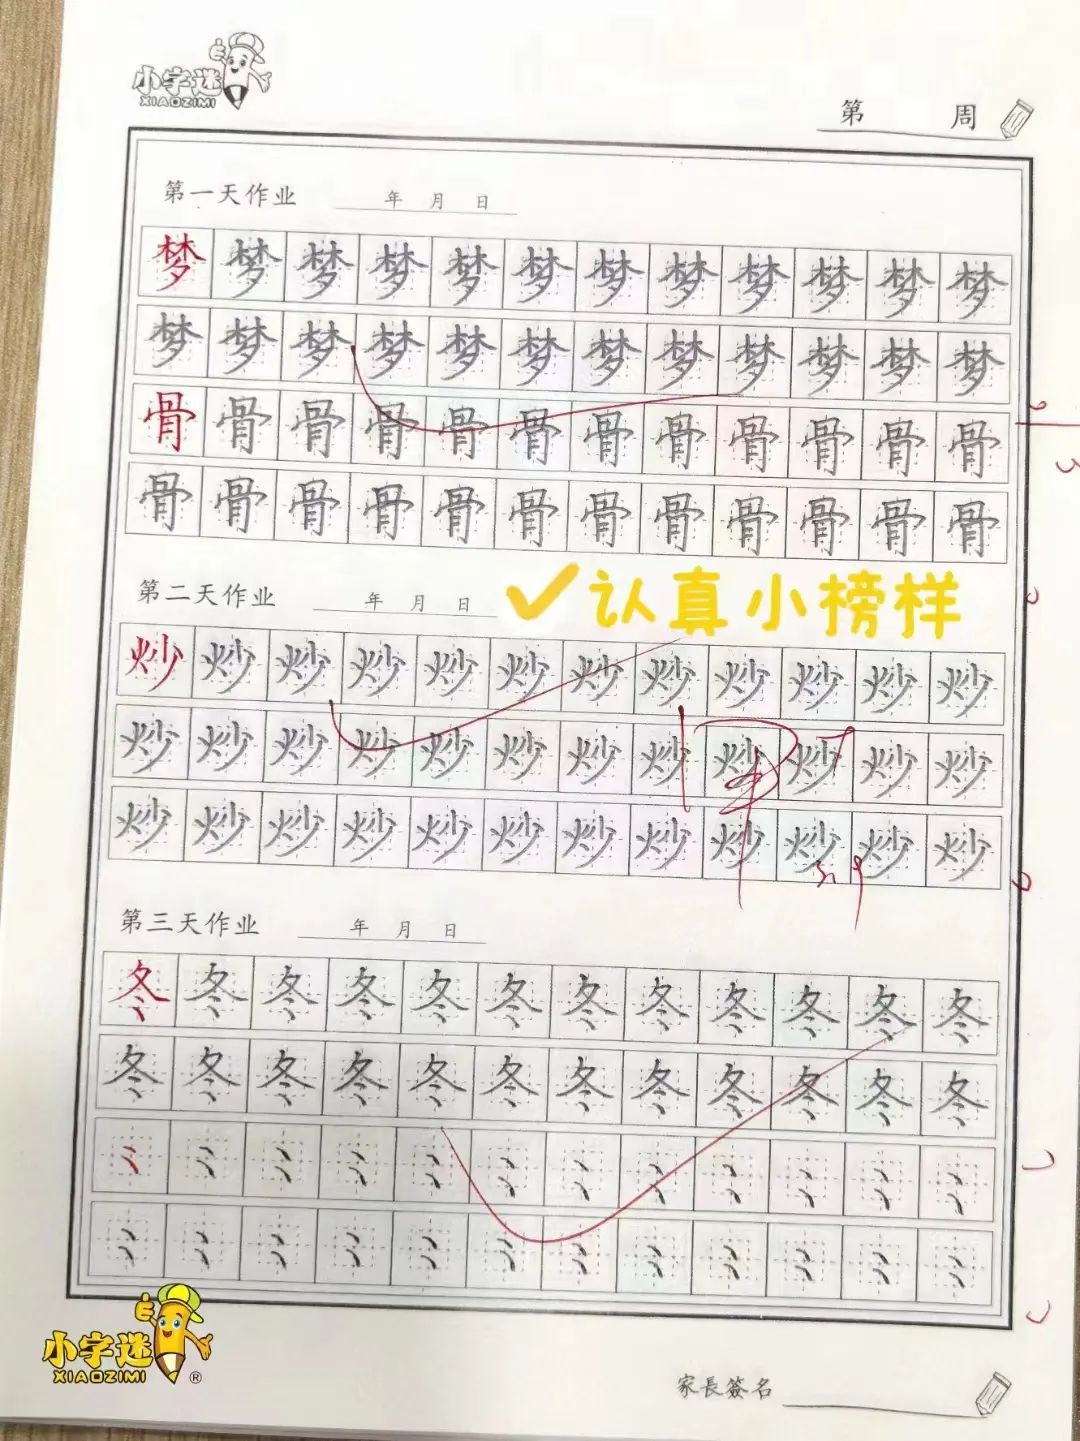 小字迷
XIAOZIMI
第 周
第一天作业 年 月 日
梦梦梦梦梦梦梦梦梦梦梦梦
梦梦梦梦梦梦梦梦梦梦梦梦
骨骨骨骨骨骨骨骨骨骨骨骨
骨骨骨骨骨骨骨骨骨骨骨骨
第二天作业 年 月 日
认真小榜样
炒炒炒炒炒炒炒炒炒炒炒炒
炒炒炒炒炒炒炒炒炒炒炒炒
炒炒炒炒炒炒炒炒炒炒炒炒
第三天作业 年 月 日
冬冬冬冬冬冬冬冬冬冬冬冬
冬冬冬冬冬冬冬冬冬冬冬冬
小字迷
XIAOZIMI®
家長簽名